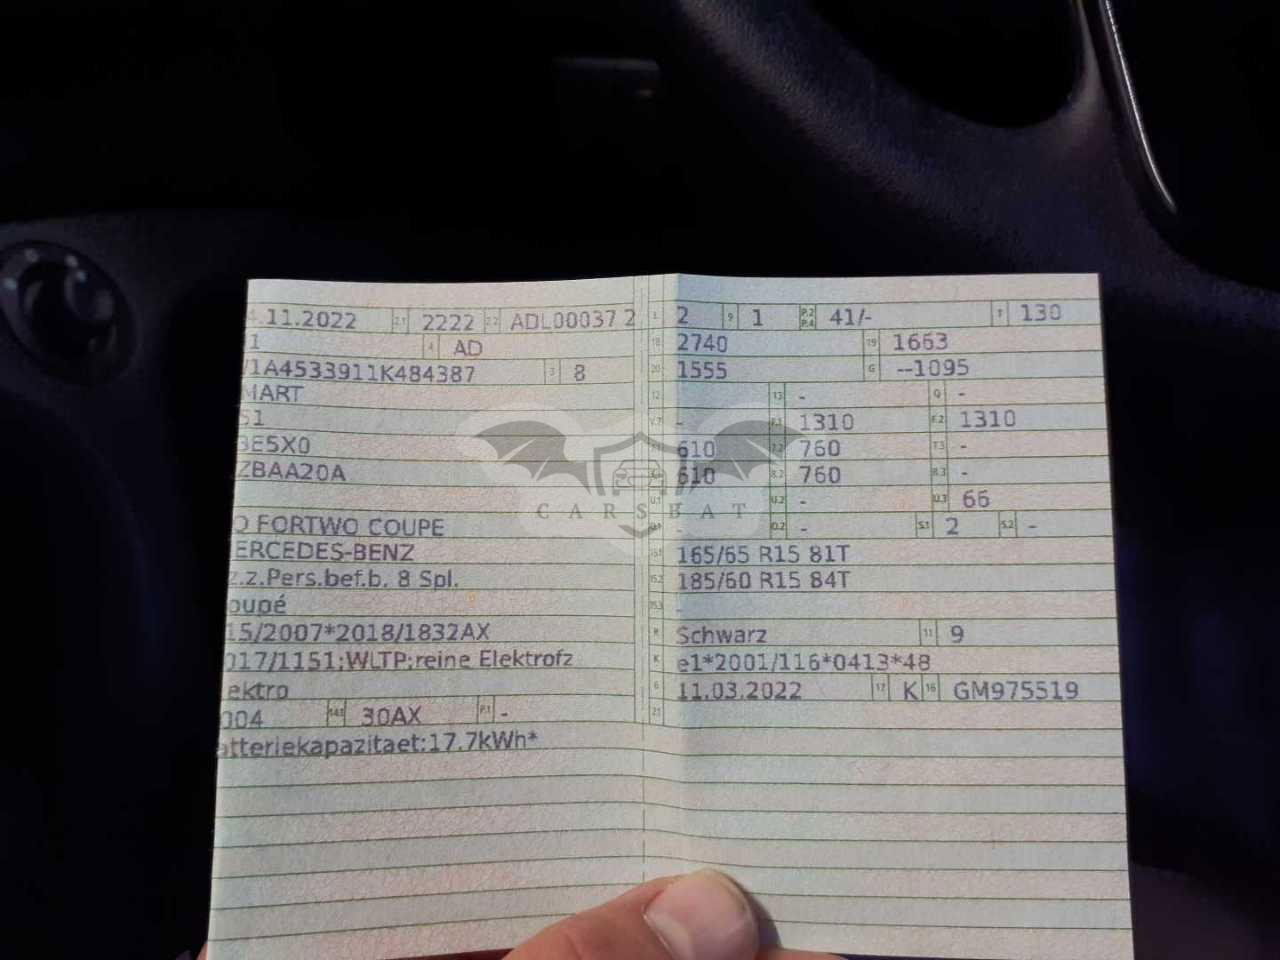 .11.2022 2.1 2222 2.2 ADL00037 2
1 4 AD
1A4533911K484387 3 8
MART
51
3E5X0
ZBAA20A
O FORTWO COUPE
ERCEDES-BENZ
z.z.Pers.bef.b. 8 Spl.
oupé
15/2007*2018/1832AX
017/1151;WLTP;reine Elektrofz
ektro
004 14.1 30AX P.1 -
atteriekapazitaet:17.7kWh*
L 2 9 1 P.2 P.4 41/- T 130
18 2740 19 1663
20 1555 G --1095
12 - 13 - Q -
V.7 - F.1 1310 F.2 1310
610 7.2 760 7.3 -
610 8.2 760 8.3 -
U.1 U.2 - U.3 66
O.1 - O.2 - S.1 2 S.2 -
15.1 165/65 R15 81T
15.2 185/60 R15 84T
15.3 -
R Schwarz 11 9
K e1*2001/116*0413*48
6 11.03.2022 17 K 16 GM975519
21
CARSBAT